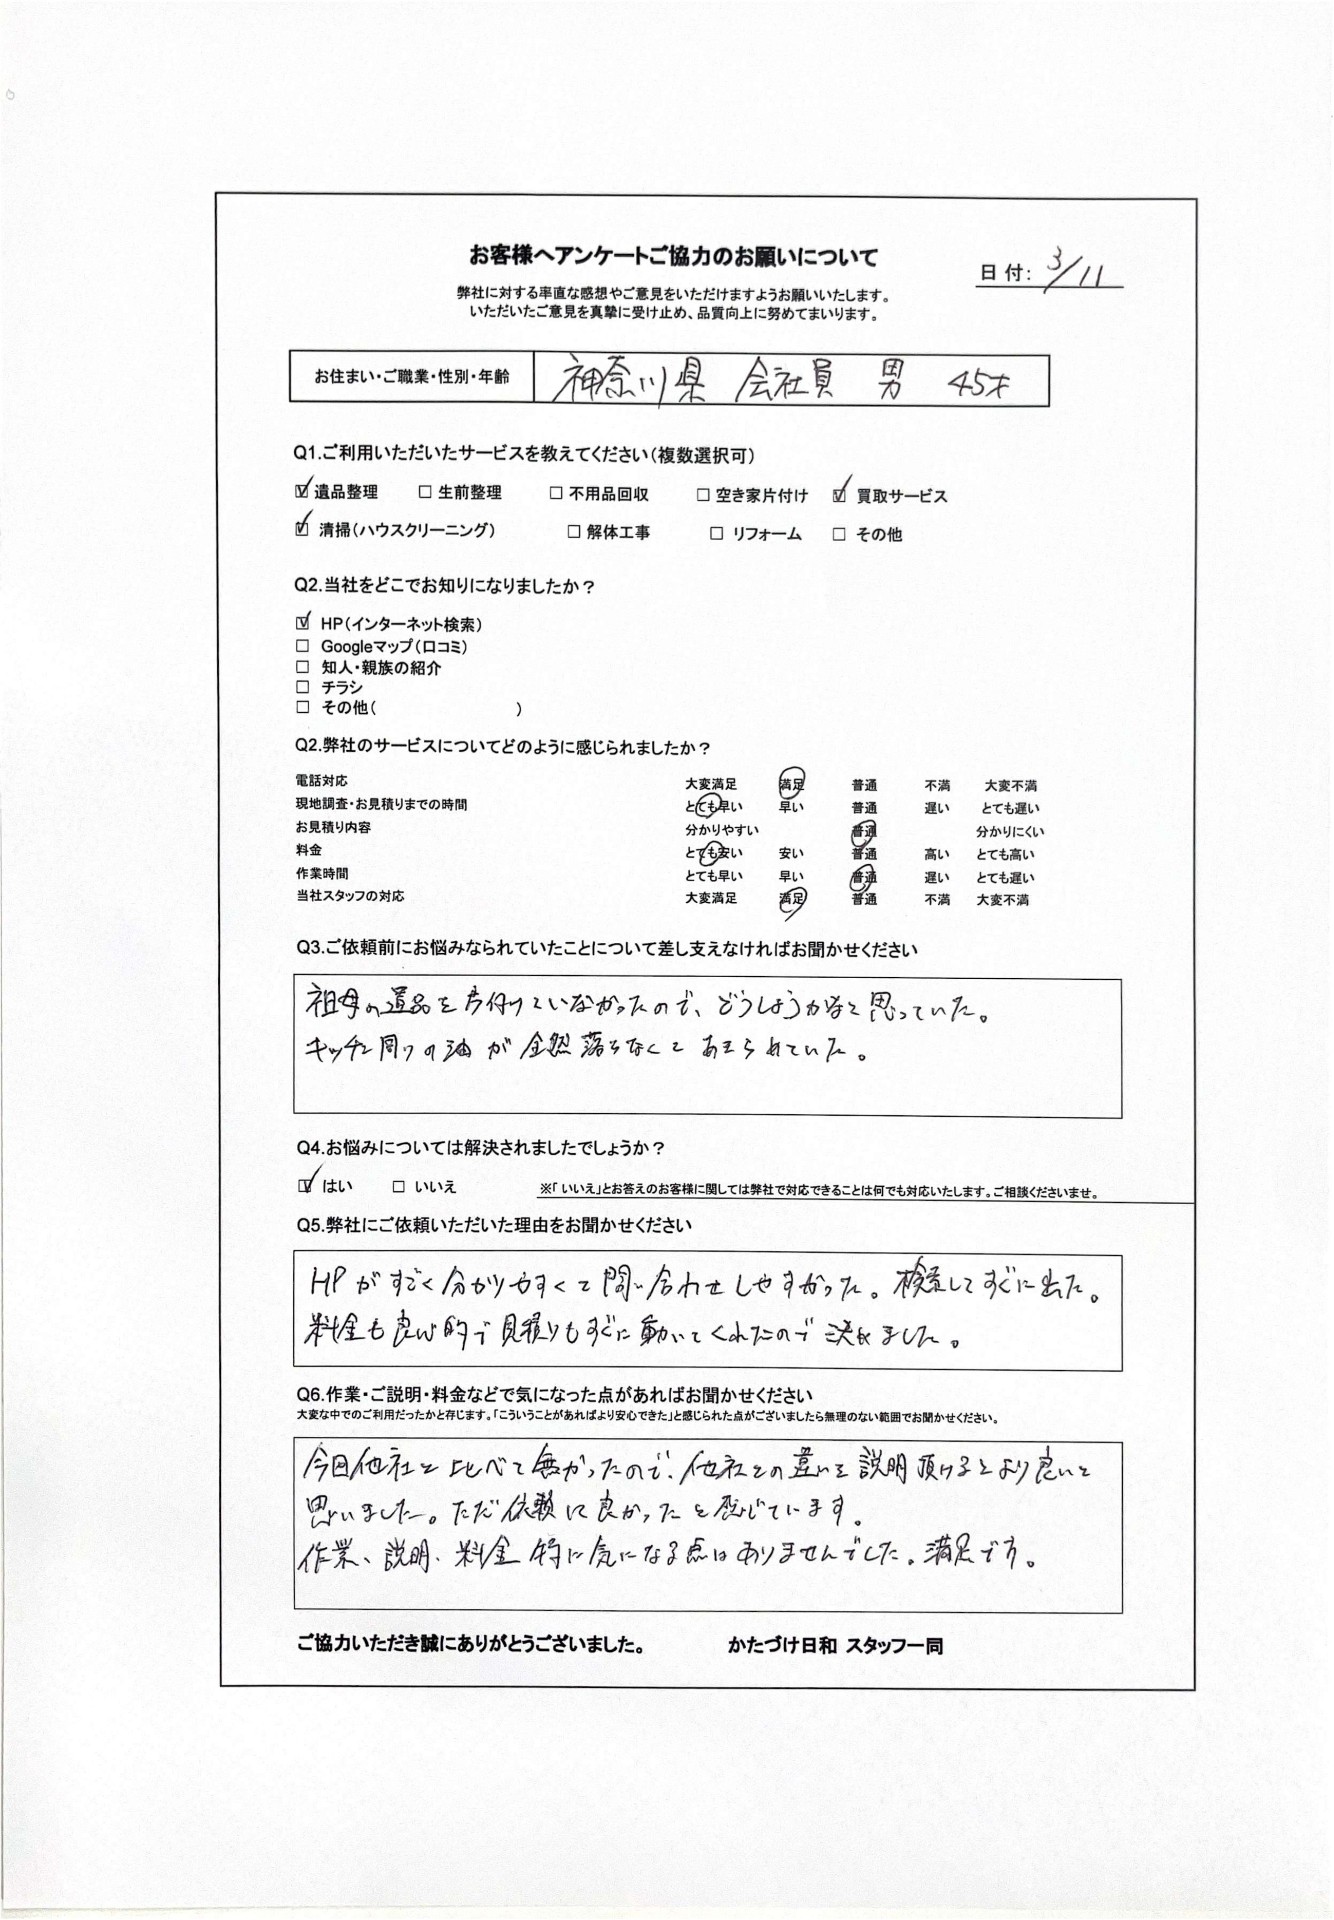 お客様へアンケートご協力のお願いについて
日付: 3/11
弊社に対する率直な感想やご意見をいただけますようお願いいたします。
いただいたご意見を真摯に受け止め、品質向上に努めてまいります。
お住まい・ご職業・性別・年齢 神奈川県 会社員 男 45才
Q1.ご利用いただいたサービスを教えてください(複数選択可)
☑遺品整理 □生前整理 □不用品回収 □空き家片付け ☑買取サービス
☑清掃(ハウスクリーニング) □解体工事 □リフォーム □その他
Q2.当社をどこでお知りになりましたか?
☑ HP(インターネット検索)
□ Googleマップ(口コミ)
□ 知人・親族の紹介
□ チラシ
□ その他( )
Q2.弊社のサービスについてどのように感じられましたか?
電話対応 大変満足 満足 普通 不満 大変不満
現地調査・お見積りまでの時間 とても早い 早い 普通 遅い とても遅い
お見積り内容 分かりやすい 普通 分かりにくい
料金 とても安い 安い 普通 高い とても高い
作業時間 とても早い 早い 普通 遅い とても遅い
当社スタッフの対応 大変満足 満足 普通 不満 大変不満
Q3.ご依頼前にお悩みなられていたことについて差し支えなければお聞かせください
祖母の遺品を片付けていなかったので、どうしようかなと思っていた。
キッチン周りの油が全然落ちなくてあきらめていた。
Q4.お悩みについては解決されましたでしょうか?
☑ はい □ いいえ ※「いいえ」とお答えのお客様に関しては弊社で対応できることは何でも対応いたします。ご相談くださいませ。
Q5.弊社にご依頼いただいた理由をお聞かせください
HPがすごく分かりやすくて問い合わせしやすかった。検索してすぐに出た。
料金も良心的で見積りもすぐに動いてくれたので決めました。
Q6.作業・ご説明・料金などで気になった点があればお聞かせください
大変な中でのご利用だったかと存じます。「こういうことがあればより安心できた」と感じられた点がございましたら無理のない範囲でお聞かせください。
今回他社と比べて無かったので、他社との違いを説明頂けるとより良いと
思いました。ただ依頼に良かったと感じています。
作業、説明、料金特に気になる点はありませんでした。満足です。
ご協力いただき誠にありがとうございました。 かたづけ日和 スタッフ一同